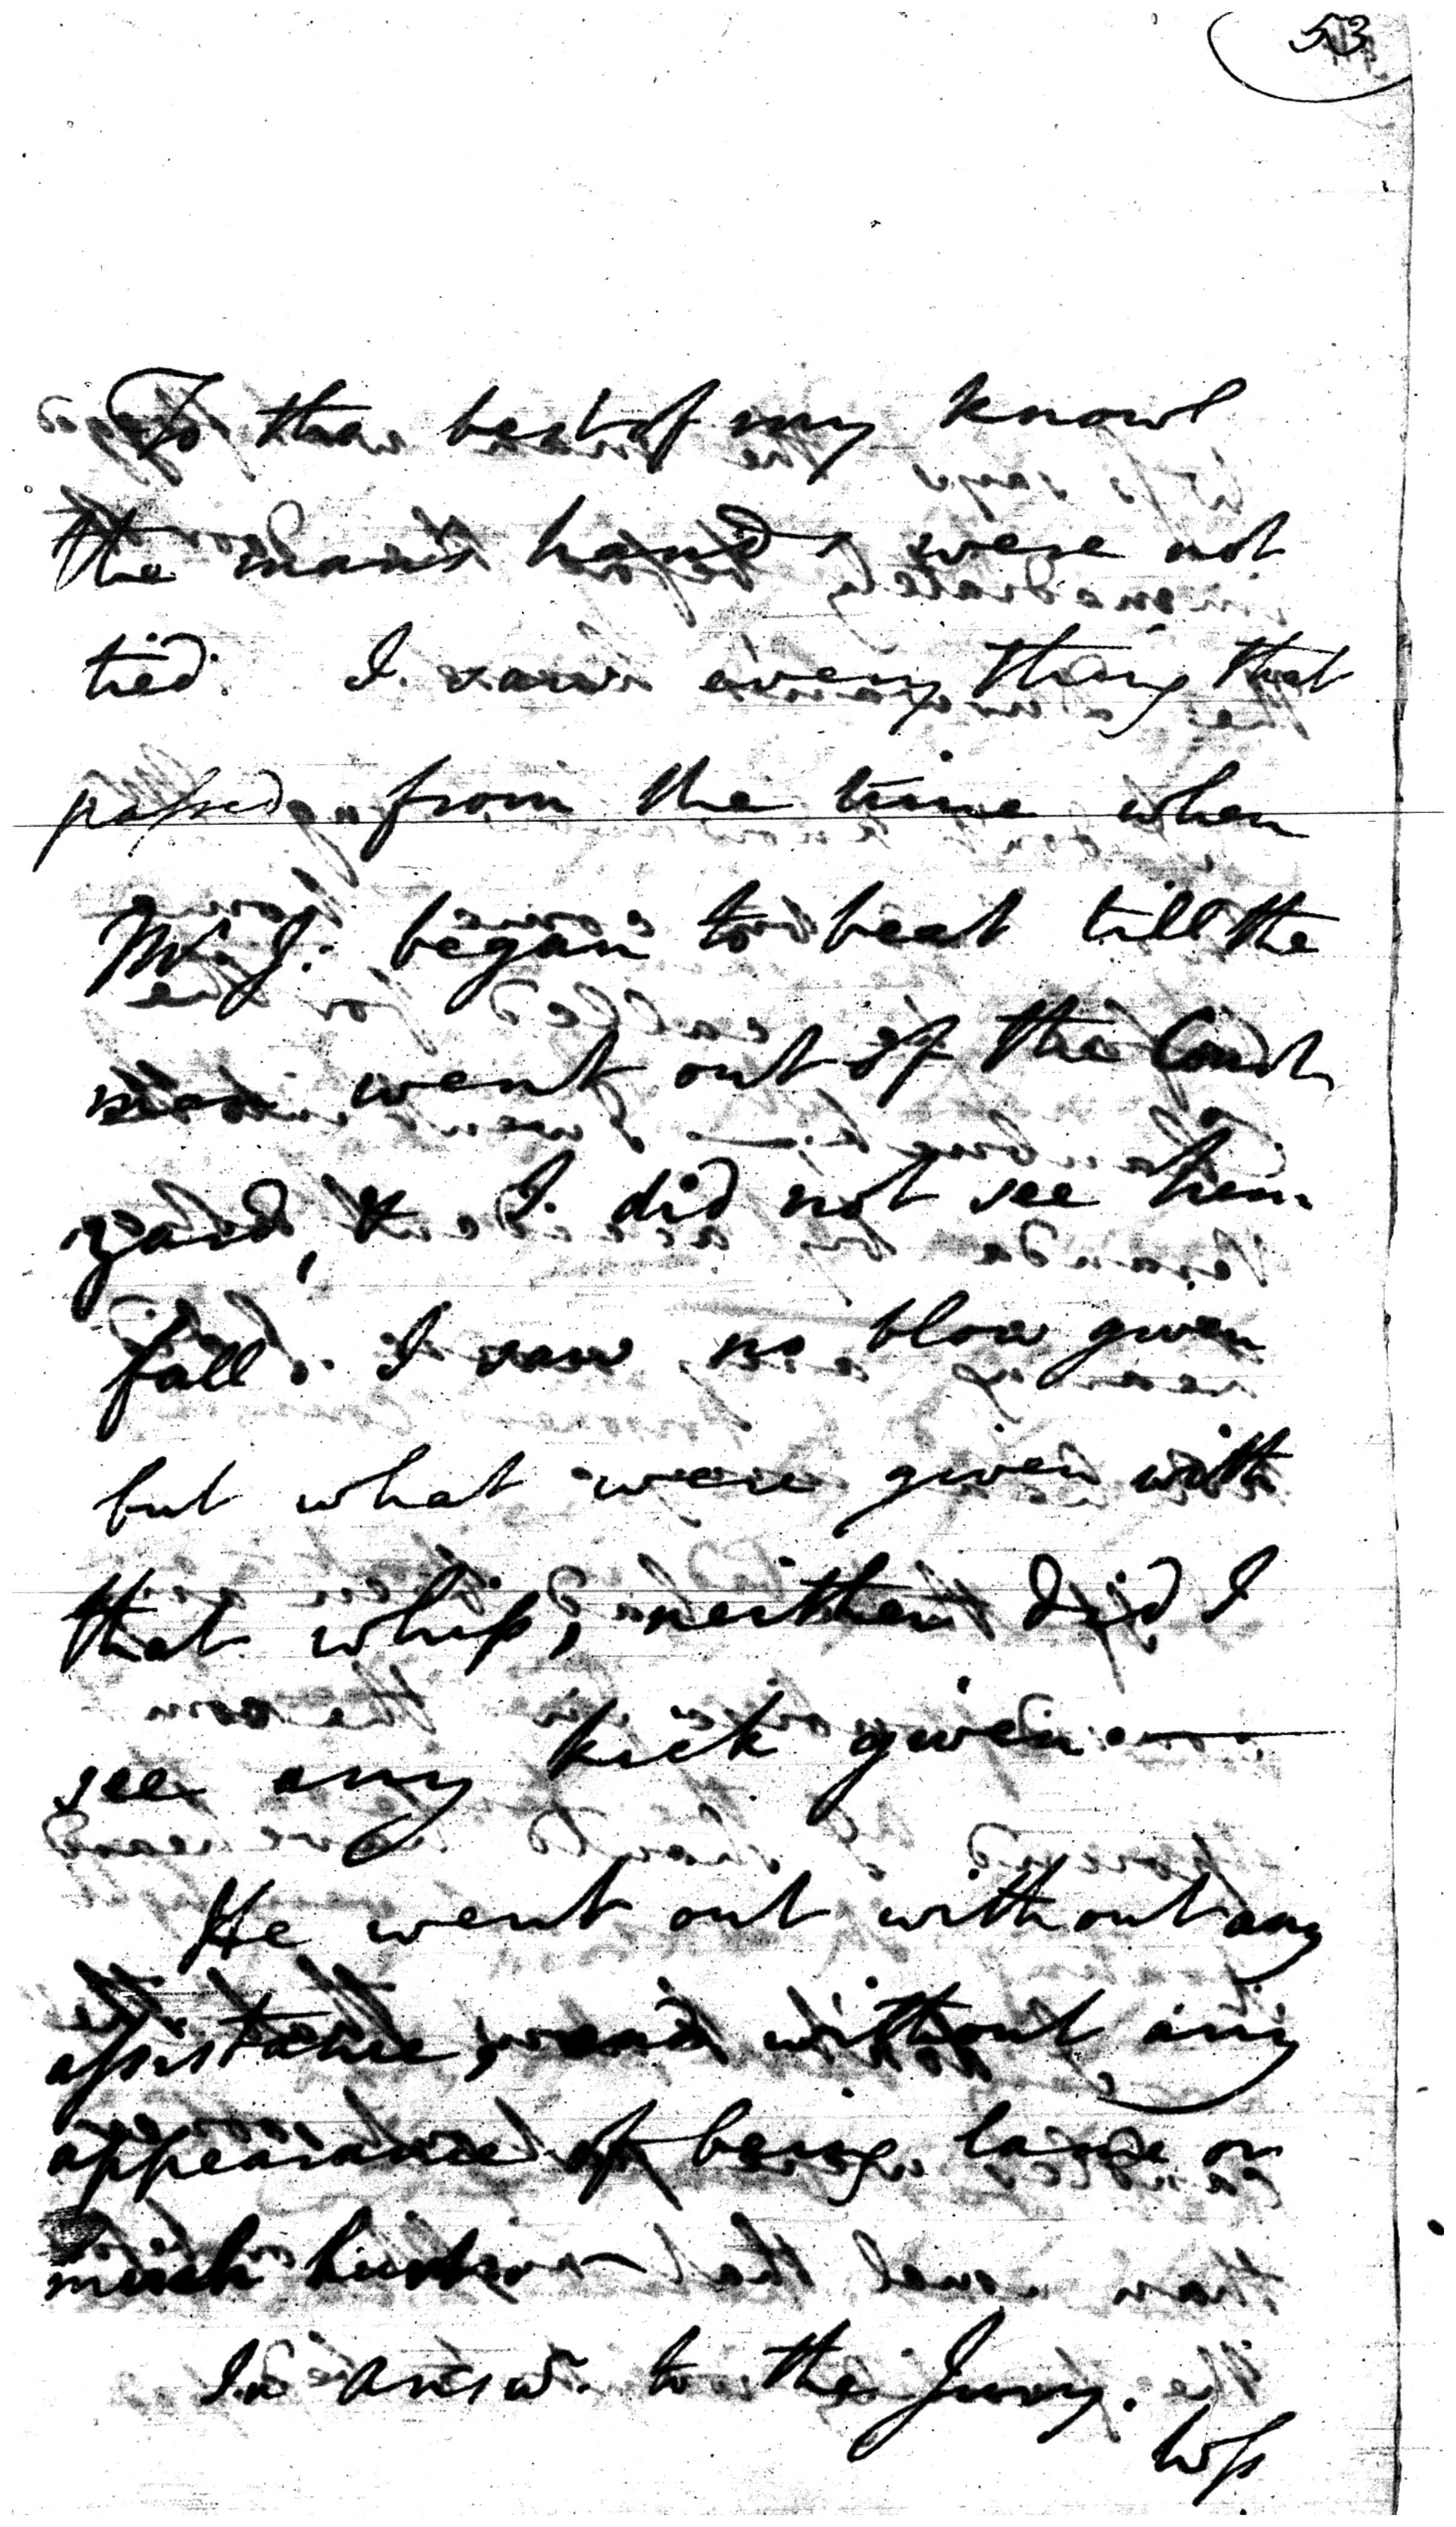 53
To the best of my knowl
the man's hands were not
tied. I saw every thing that
passed from the time when
Mr. J. began to beat till the
man went out of the Court
yard, & I did not see him
fall. I saw no blow given
but what were given with
that whip, neither did I
see any kick given. —
He went out without any
assistance, and without any
appearance of being lame or
much hurt. —
In answr. to the Jury.
Wss